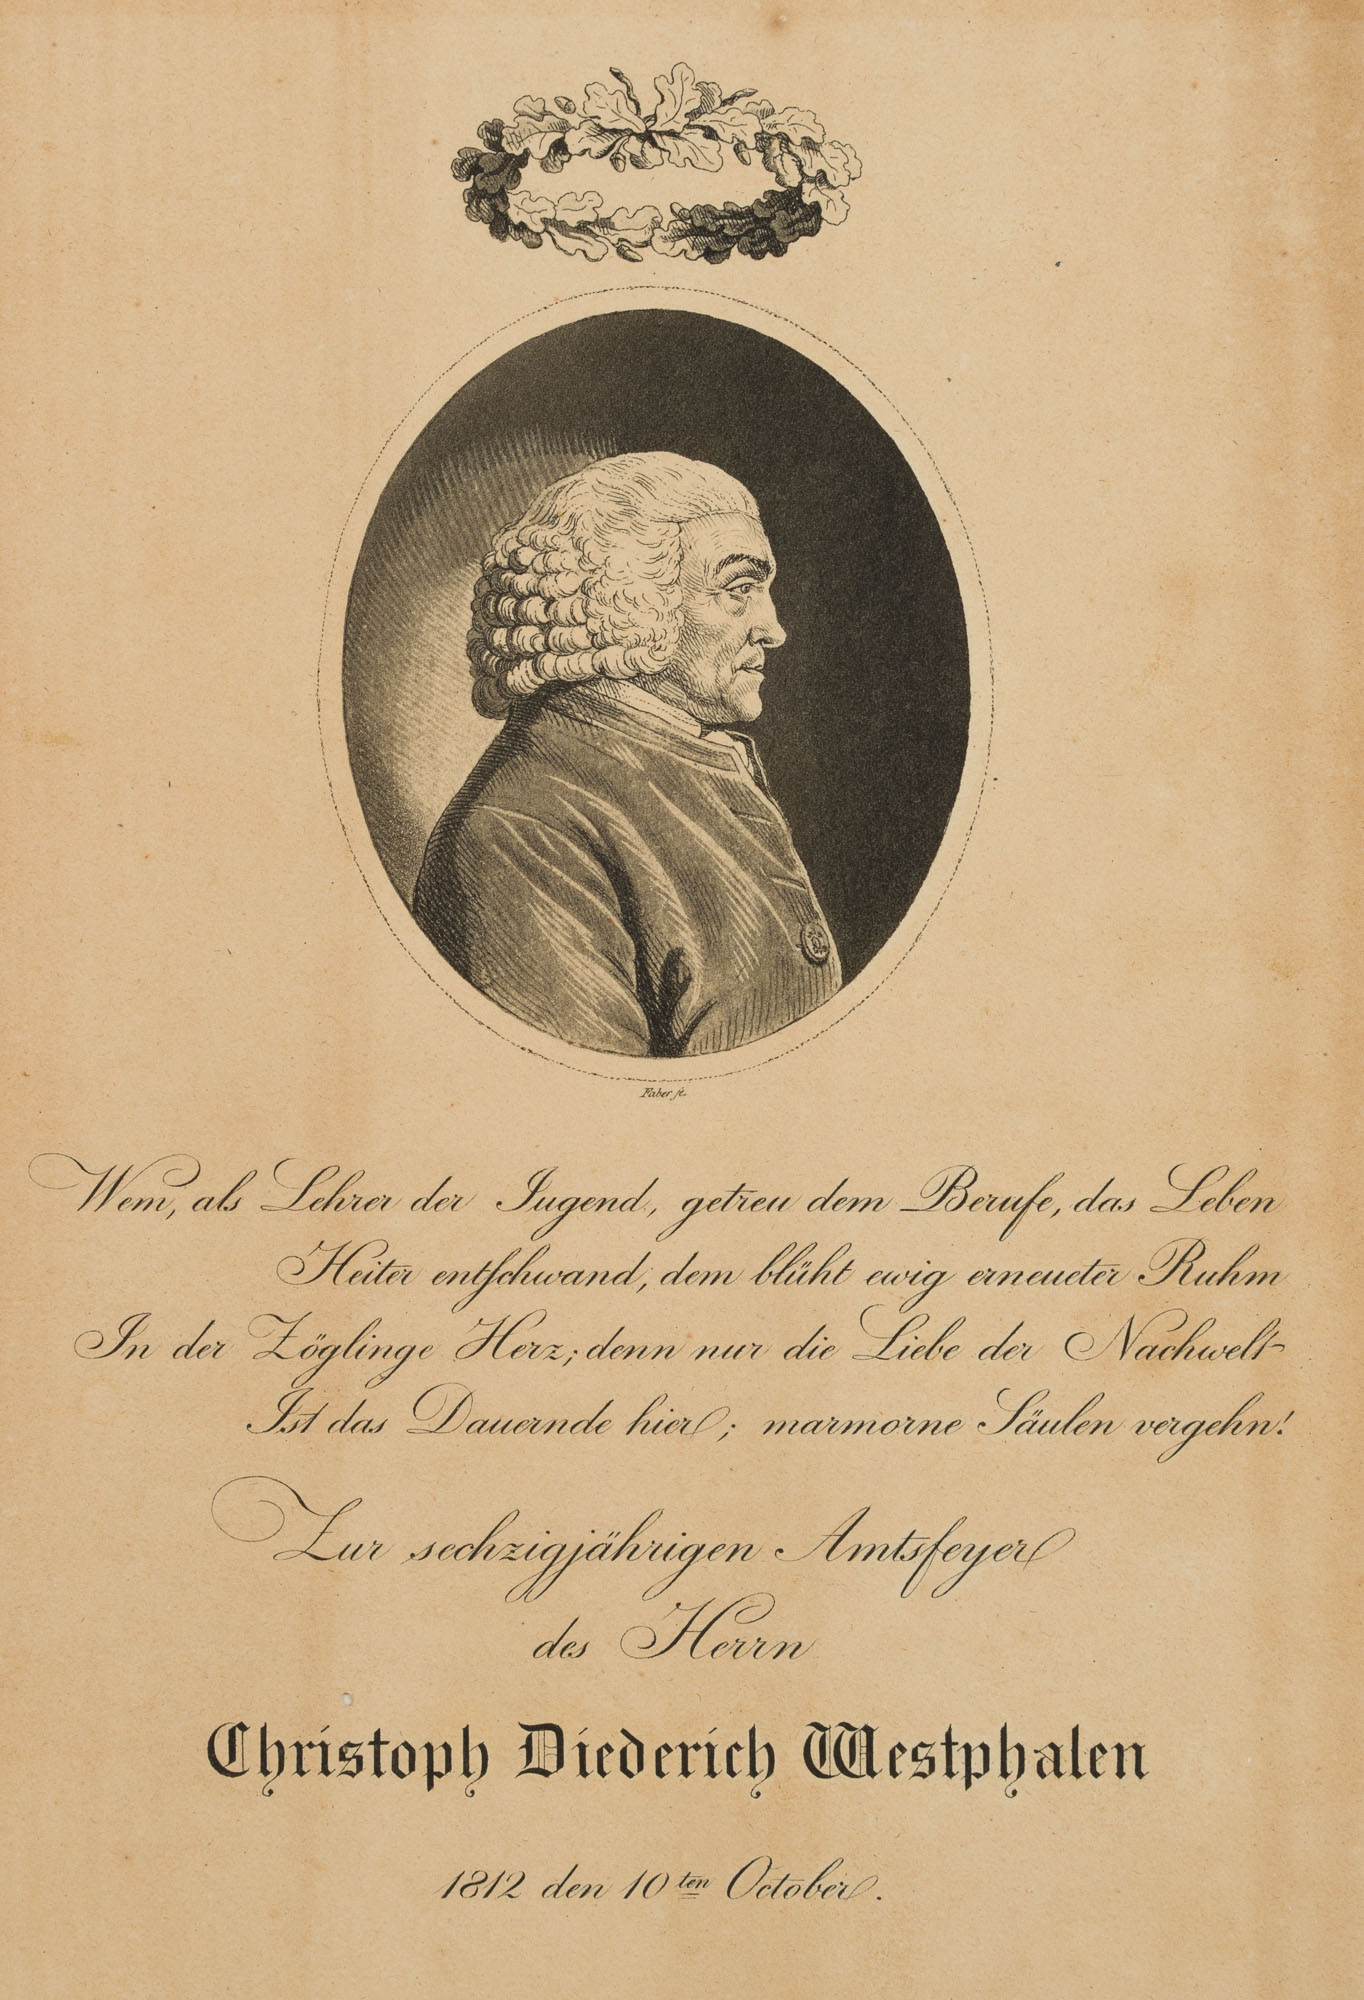 Faber fe.
Wem, als Lehrer der Jugend, getreu dem Berufe, das Leben
Heiter entschwand, dem blüht ewig erneueter Ruhm
In der Zöglinge Herz; denn nur die Liebe der Nachwelt
Ist das Dauernde hier; marmorne Säulen vergehn!
Zur sechzigjährigen Amtsfeyer
des Herrn
Christoph Diederich Westphalen
1812 den 10ten October.